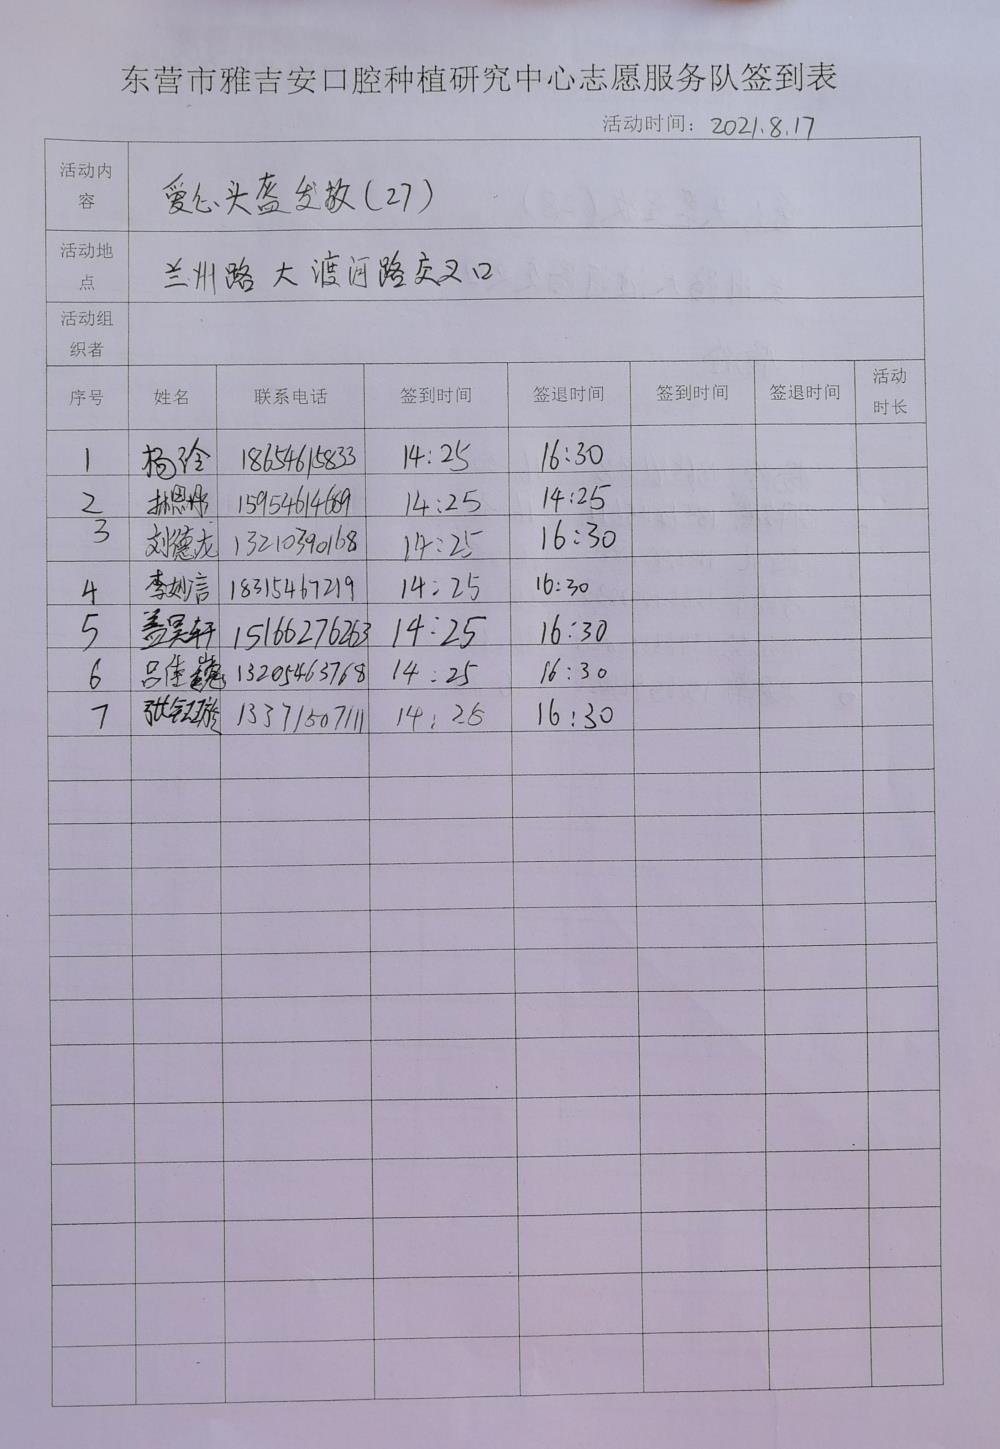 东营市雅吉安口腔种植研究中心志愿服务队签到表
活动时间：2021.8.17
活动内容 爱心头盔发放(27)
活动地点 兰州路大渡河路交叉口
活动组织者
序号 姓名 联系电话 签到时间 签退时间 签到时间 签退时间 活动时长
1 杨玲 18654615833 14:25 16:30
2 孙恩彤 15954614669 14:25 14:25
3 刘德龙 13210390168 14:25 16:30
4 李妙言 18315467219 14:25 16:30
5 盖昊轩 15166276263 14:25 16:30
6 吕佳 13205463768 14:25 16:30
7 张 13371507111 14:25 16:30